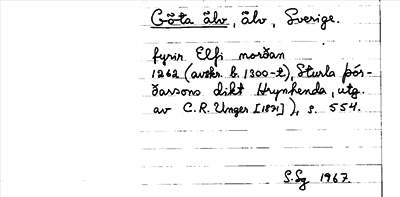 Göta älv, älv, Sverige.
fyrir Elfi norðan
1262 (avskr. b. 1300-t), Sturla Þór-
ðarsons dikt Hrynhenda, utg.
av C. R. Unger [1871]), s. 554.
S.Sg 1967.